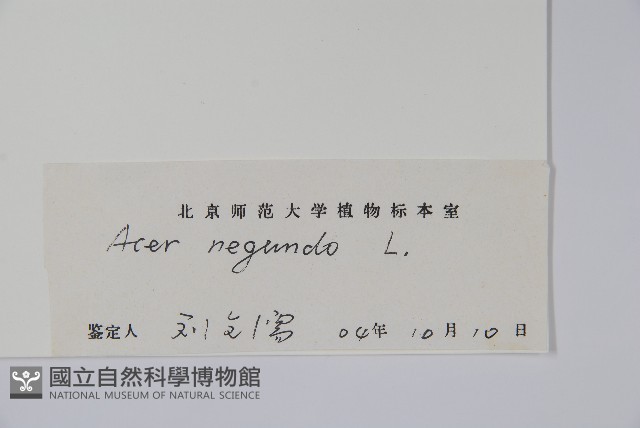 北京师范大学植物标本室
Acer negundo L.
鉴定人 刘全儒 04年10月10日
國立自然科學博物館
NATIONAL MUSEUM OF NATURAL SCIENCE